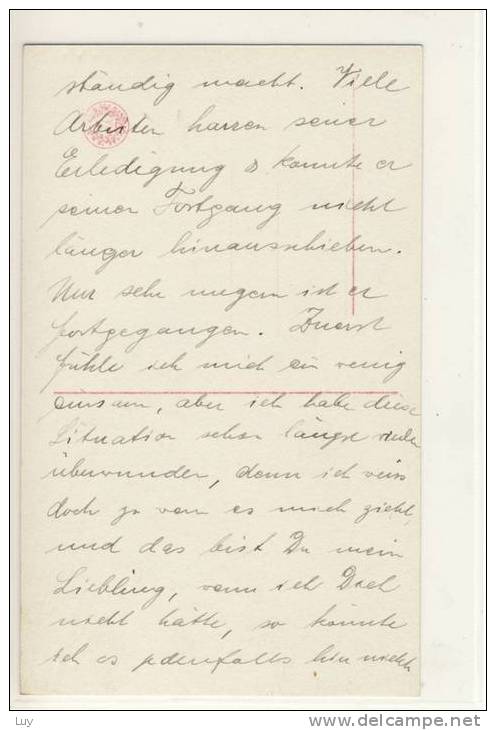 ständig macht. Viele
Arbeiten harren seiner
Erledigung & konnte er
seinen Fortgang nicht
länger hinausschieben.
Nur sehr ungern ist er
fortgegangen. Zuerst
fühle ich mich ein wenig
einsam, aber ich habe diese
Situation schon längst wieder
überwunden, denn ich weiss
doch zu wem es mich zieht,
und das bist Du mein
Liebling, wenn ich Dich
nicht hätte, so könnte
ich es jedenfalls hier nicht
Luy
www.delcampe.net